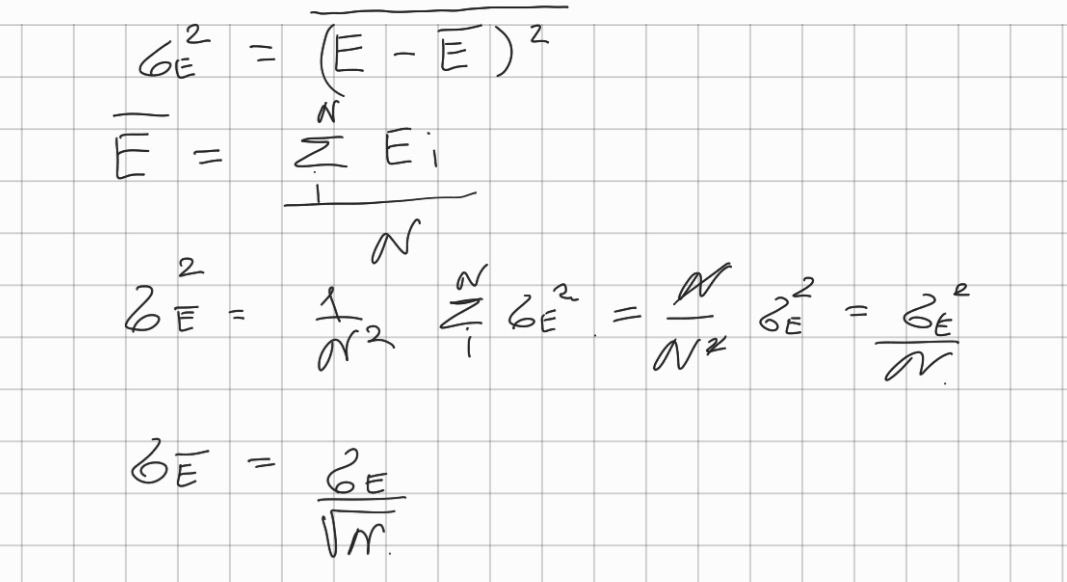 σ_E² = \overline{(E - \overline{E})²}
\overline{E} = \frac{\sum_{i}^{N} E_i}{N}
σ_{\overline{E}}² = \frac{1}{N²} \sum_{i}^{N} σ_E² = \frac{N}{N²} σ_E² = \frac{σ_E²}{N}
σ_{\overline{E}} = \frac{σ_E}{\sqrt{N}}